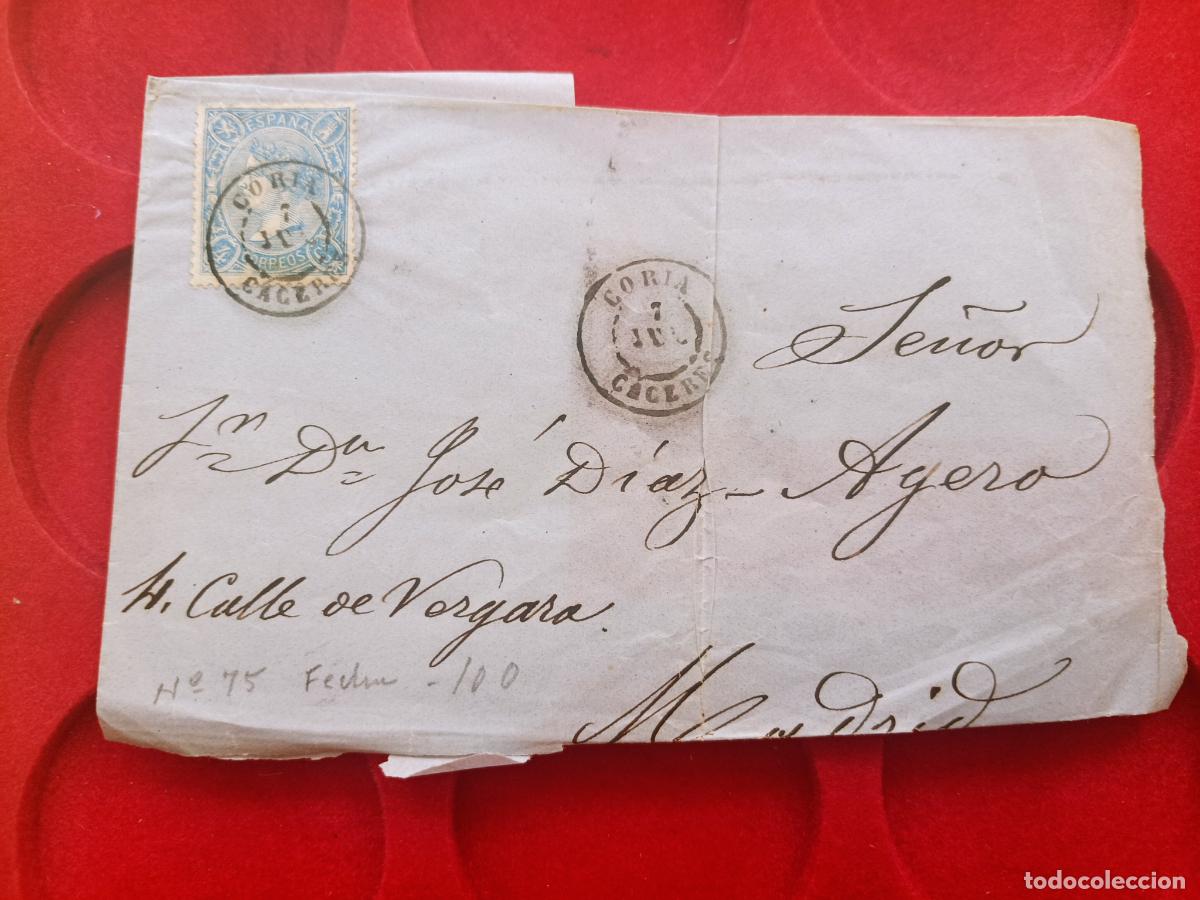 ESPAÑA
CORREOS
CORIA
7
CACERES
CORIA
7
JUL
CACERES
Señor
Sn. Dn José Díaz - Agero
4. Calle de Vergara.
Nº 75 Fecha - 100
Madrid
todocoleccion